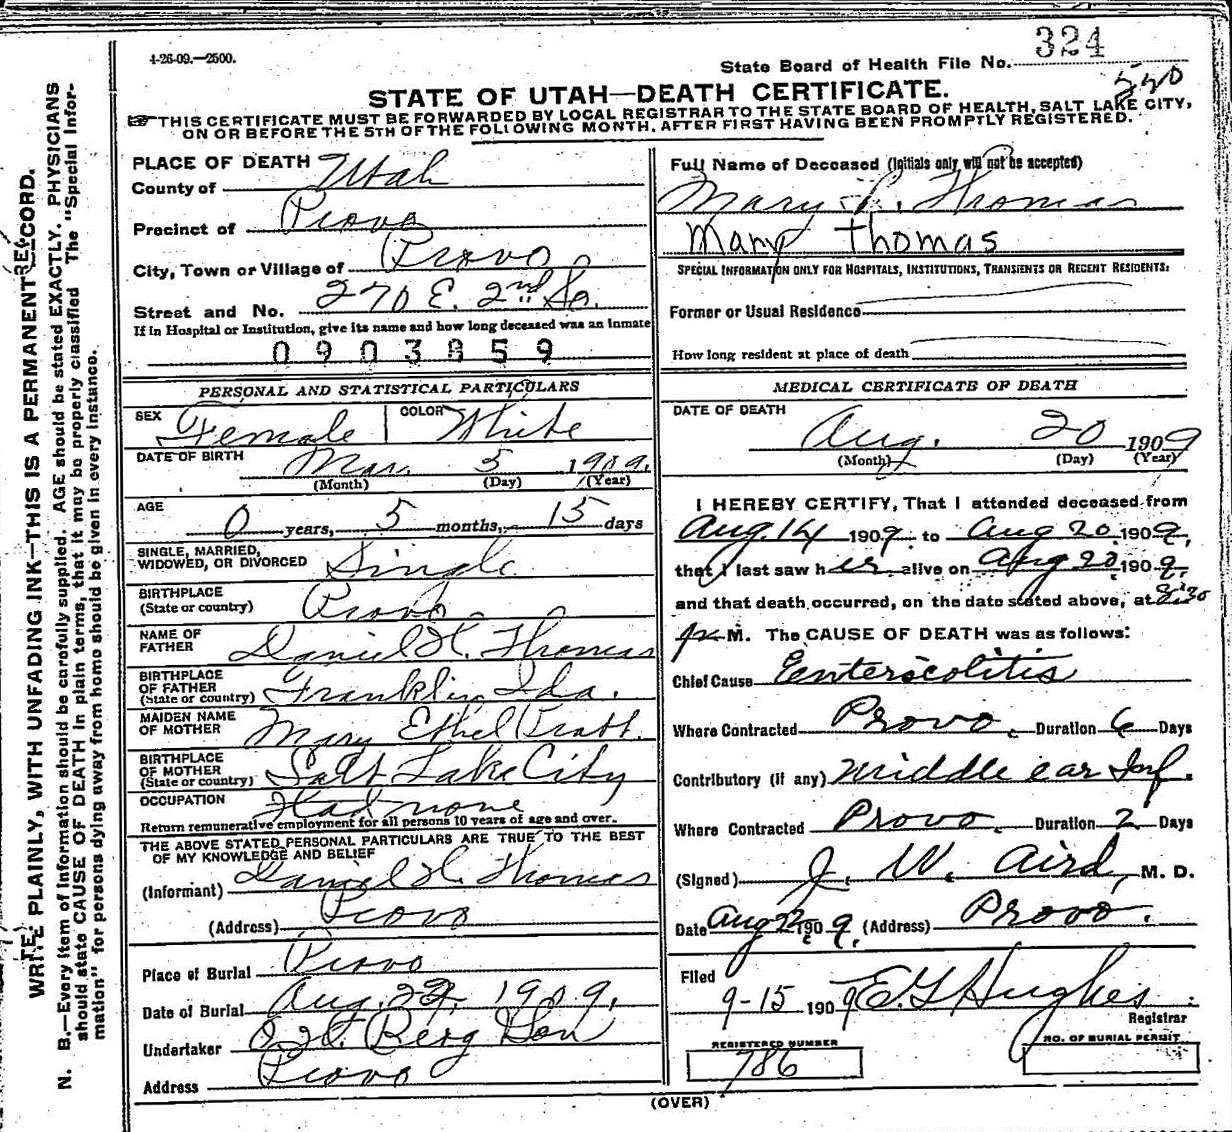 4-26-09.—2500.
State Board of Health File No. 324
520
STATE OF UTAH—DEATH CERTIFICATE.
THIS CERTIFICATE MUST BE FORWARDED BY LOCAL REGISTRAR TO THE STATE BOARD OF HEALTH, SALT LAKE CITY,
ON OR BEFORE THE 5TH OF THE FOLLOWING MONTH, AFTER FIRST HAVING BEEN PROMPTLY REGISTERED.
WRITE PLAINLY, WITH UNFADING INK—THIS IS A PERMANENT RECORD.
N. B.—Every item of information should be carefully supplied. AGE should be stated EXACTLY. PHYSICIANS
should state CAUSE OF DEATH in plain terms, that it may be properly classified. The "Special Infor-
mation" for persons dying away from home should be given in every instance.
PLACE OF DEATH
County of Utah
Precinct of Provo
City, Town or Village of Provo
Street and No. 270 E. 2nd So.
If in Hospital or Institution, give its name and how long deceased was an inmate
0903859
PERSONAL AND STATISTICAL PARTICULARS
SEX Female COLOR White
DATE OF BIRTH Mar. 5 1909.
(Month) (Day) (Year)
AGE
0 years, 5 months, 15 days
SINGLE, MARRIED,
WIDOWED, OR DIVORCED Single
BIRTHPLACE
(State or country) Provo
NAME OF
FATHER Daniel H. Thomas
BIRTHPLACE
OF FATHER
(State or country) Franklin, Ida.
MAIDEN NAME
OF MOTHER Mary Ethel Pratt.
BIRTHPLACE
OF MOTHER
(State or country) Salt Lake City
OCCUPATION Had none
Return remunerative employment for all persons 10 years of age and over.
THE ABOVE STATED PERSONAL PARTICULARS ARE TRUE TO THE BEST
OF MY KNOWLEDGE AND BELIEF
(Informant) Daniel H. Thomas
(Address) Provo
Place of Burial Provo
Date of Burial Aug. 22, 1909.
Undertaker Berg Son
Address Provo
Full Name of Deceased (Initials only will not be accepted)
Mary P. Thomas
Mary Thomas
SPECIAL INFORMATION ONLY FOR HOSPITALS, INSTITUTIONS, TRANSIENTS OR RECENT RESIDENTS:
Former or Usual Residence
How long resident at place of death
MEDICAL CERTIFICATE OF DEATH
DATE OF DEATH
Aug. 20 1909
(Month) (Day) (Year)
I HEREBY CERTIFY, That I attended deceased from
Aug. 14 1909. to Aug 20 1909,
that I last saw her alive on Aug 20, 1909,
and that death occurred, on the date stated above, at 8:30
P M. The CAUSE OF DEATH was as follows:
Chief Cause Eenterocolitis
Where Contracted Provo. Duration 6 Days
Contributory (if any) Middle ear Inf.
Where Contracted Provo. Duration 2 Days
(Signed) J. W. Aird, M. D.
Date Aug 22 1909. (Address) Provo.
Filed
9-15 1909 E. G. Hughes
Registrar
REGISTERED NUMBER
786
NO. OF BURIAL PERMIT
(OVER)